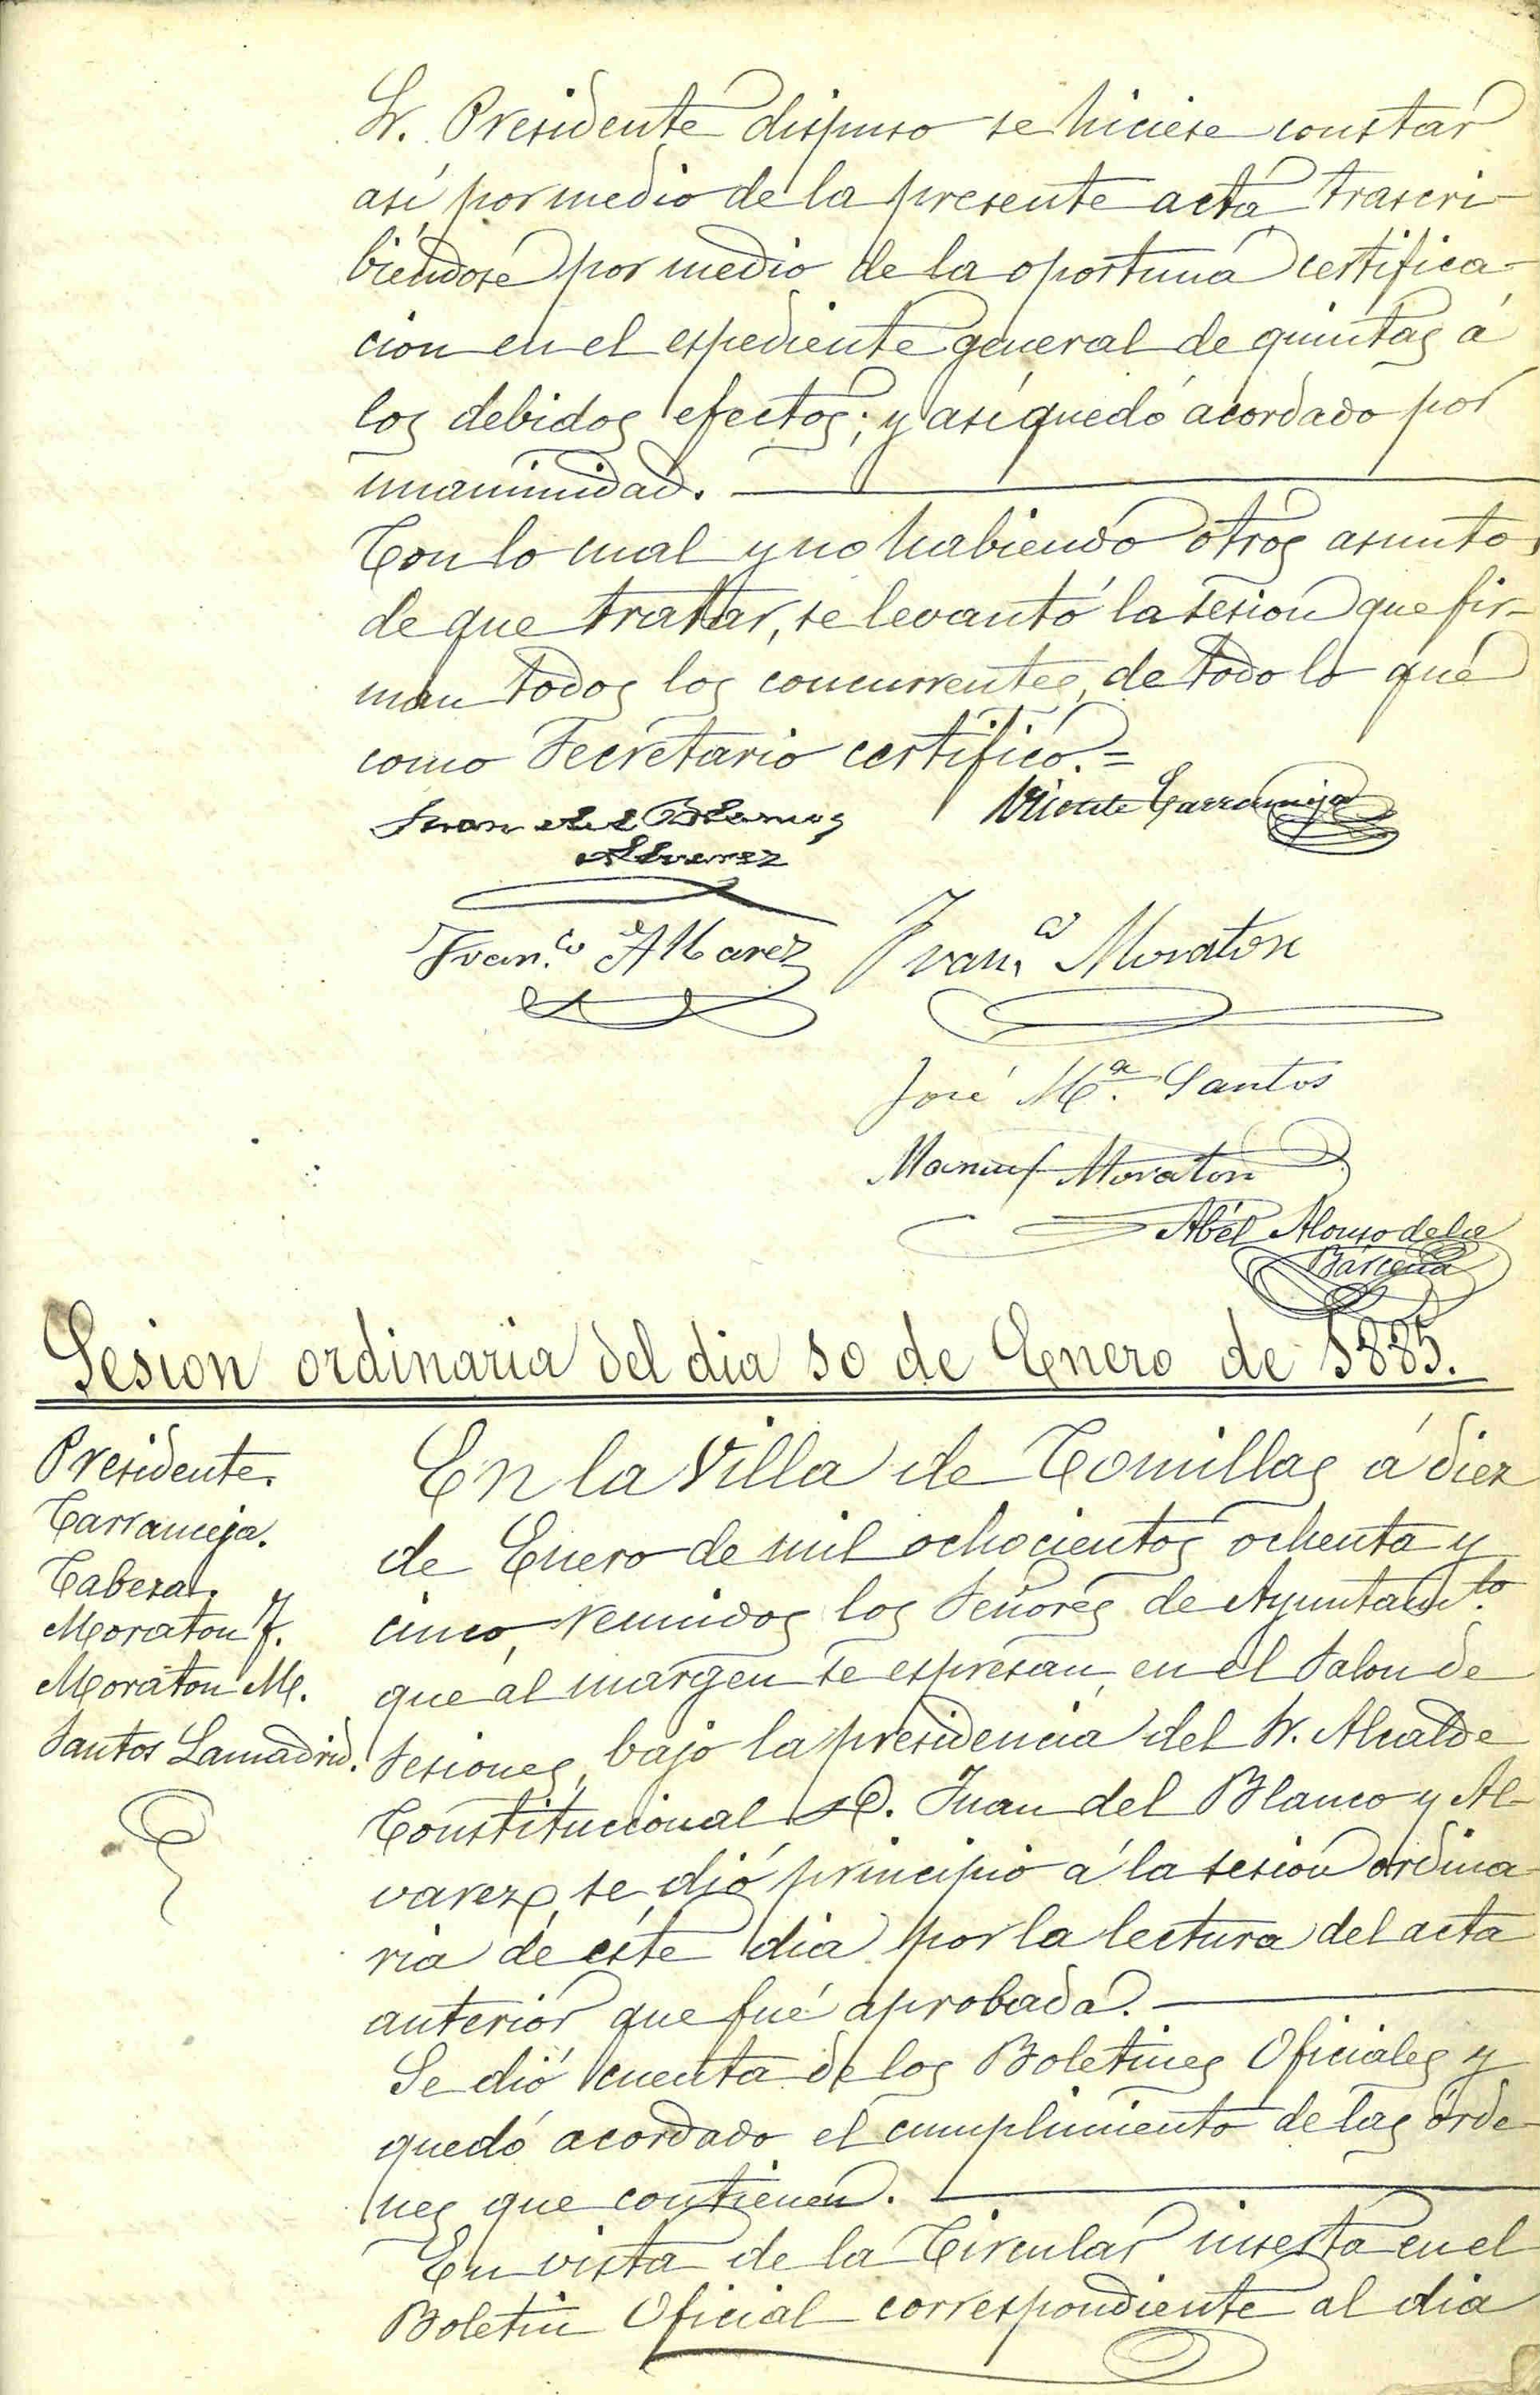 Sr. Presidente dispuso se hiciese constar
así por medio de la presente acta trascri-
biéndose por medio de la oportuna certifica-
cion en el espediente general de quintas á
los debidos efectos; y así quedó acordado por
unanimidad.
Con lo cual y no habiendo otros asuntos
de que tratar, se levantó la sesion que fir-
man todos los concurrentes, de todo lo que
como Secretario certifico.=
Juan del Blanco y
Alvarez
Vicente Carrameja
Fran.co Alvarez
Fran.co Moraton
José M.a Santos
Manuel Moraton
Abél Alonso de la
Bárcena
Sesion ordinaria del dia 10 de Enero de 1885.
Presidente.
Carrameja.
Cabeza.
Moraton F.
Moraton M.
Santos Lamadrid.
En la Villa de Comillas á diez
de Enero de mil ochocientos ochenta y
cinco, reunidos los Señores de Ayuntam.to
que al margen se espresan, en el Salon de
Sesiones, bajo la presidencia del Sr. Alcalde
Constitucional D. Juan del Blanco y Al-
varez, se dió principio á la sesion ordina-
ria de éste dia por la lectura del acta
anterior que fué aprobada.
Se dió cuenta de los Boletines Oficiales y
quedó acordado el cumplimiento de las órde-
nes que contienen.
En vista de la Circular inserta en el
Boletin Oficial correspondiente al dia